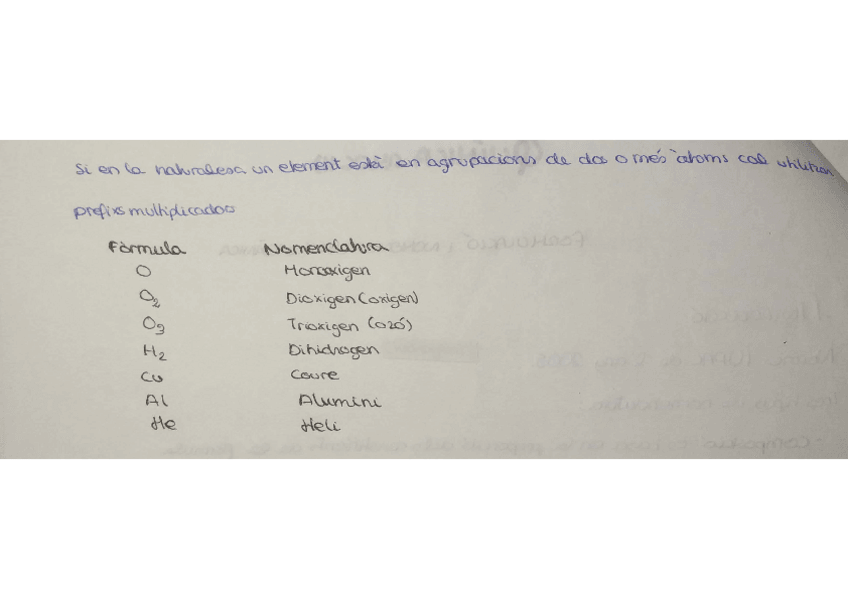 Si en la naturalesa un element està en agrupacions de dos o més àtoms cal utilitzar
prefixs multiplicados
Fòrmula Nomenclatura
O Monooxigen
O2 Dioxigen (oxigen)
O3 Trioxigen (ozó)
H2 Dihidrogen
Cu Coure
Al Alumini
He Heli